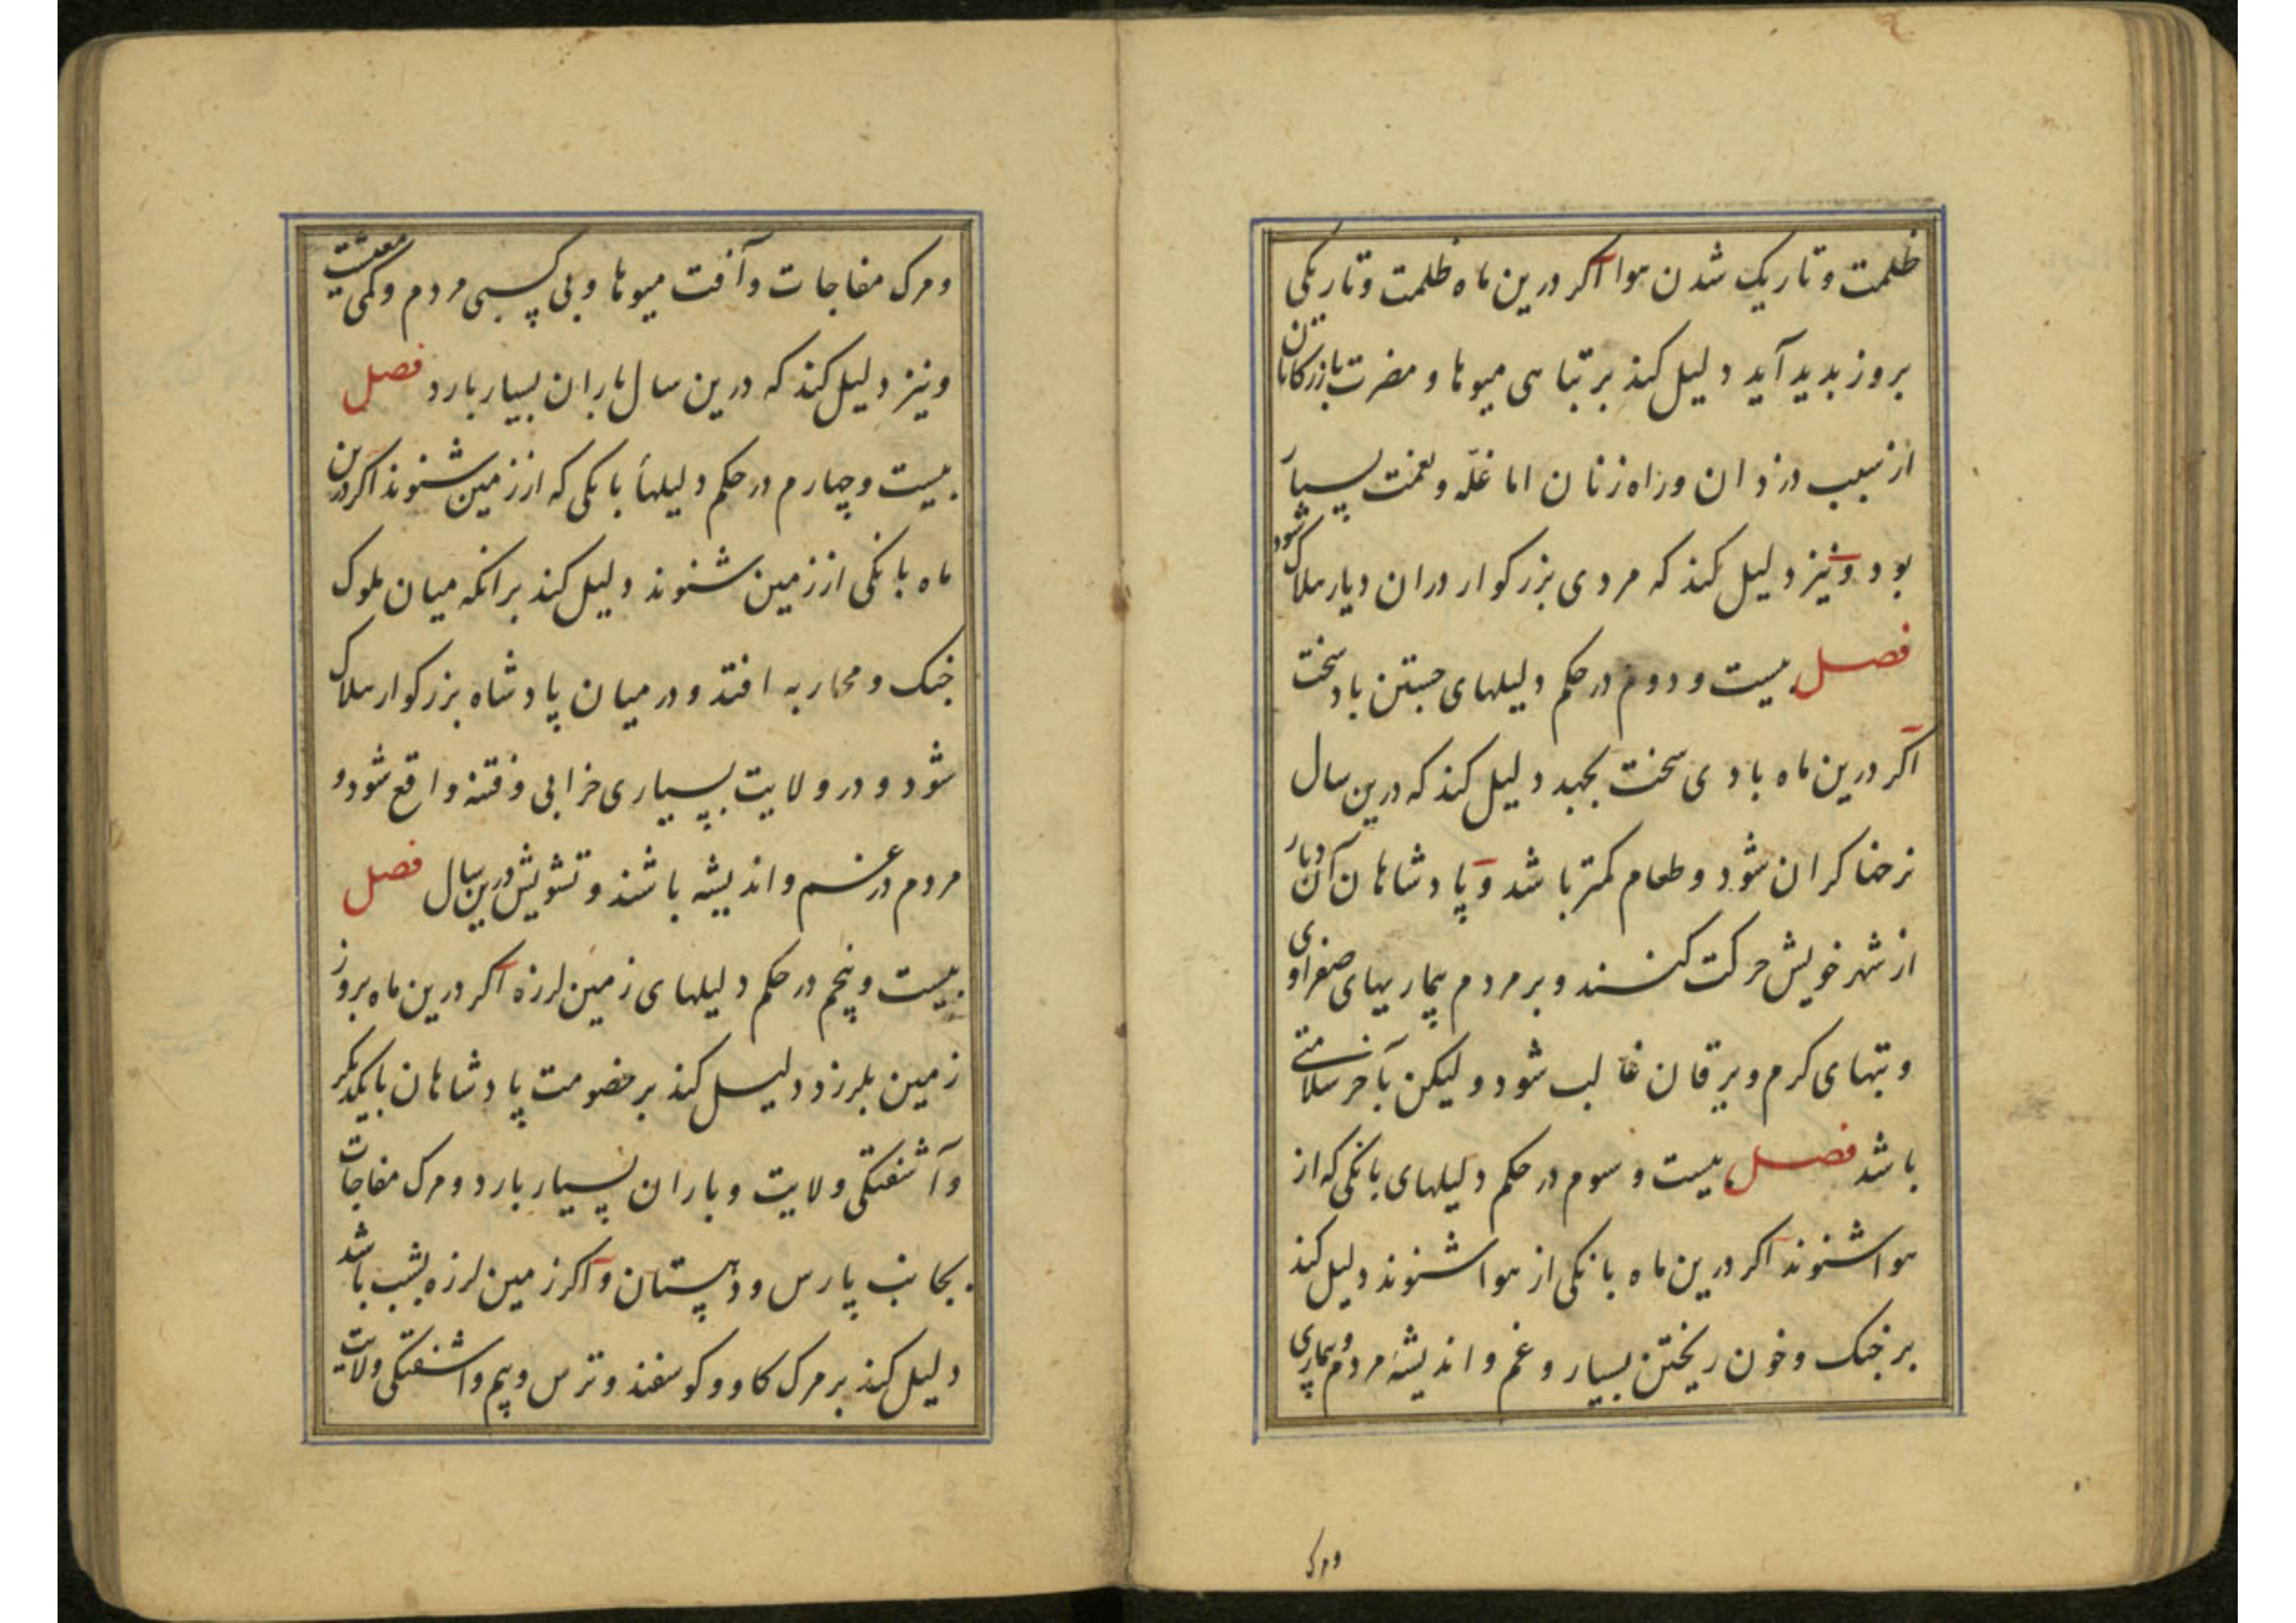 ظلمت و تاریک شدن هوا اکر درین ماه ظلمت و تاریکی
بروز بدید آید دلیل کند بر تباهی میوها و مضرت بازرکانان
از سبب دزدان و راه زنان اما غلّه و نعمت بسیار
بود و نیز دلیل کند که مردی بزرکوار دران دیار هلاک شود
فصل بیست و دوم در حکم دلیلهای جستن باد سخت
اکر درین ماه بادی سخت بجهد دلیل کند که درین سال
نرخها کران شود و طعام کمتر باشد و پادشاهان آن دیار
از شهر خویش حرکت کنند و بر مردم بیماریهای صفراوی
و تبهای کرم و یرقان غالب شود و لیکن بآخر سلامتی
باشد فصل بیست و سوم در حکم دلیلهای بانکی که از
هوا شنوند اکر درین ماه بانکی از هوا شنوند دلیل کند
بر جنک و خون ریختن بسیار و غم و اندیشهٔ مردم و بیماری
ومرک
و مرک مفاجات و آفت میوها و بی کسبی مردم و کمی معیشت
و نیز دلیل کند که درین سال باران بسیار بارد فصل
بیست و چهارم در حکم دلیلهأ بانکی که از زمین شنوند اکر درین
ماه بانکی از زمین شنوند دلیل کند برانکه میان ملوک
جنک و محاربه افتد و در میان پادشاه بزرکوار هلاک
شود و در ولایت بسیاری خرابی و فتنه واقع شود و
مردم در غم و اندیشه باشند و تشویش درین سال فصل
بیست و پنجم در حکم دلیلهای زمین لرزه اکر درین ماه بروز
زمین بلرزد دلیل کند بر خصومت پادشاهان بایکدیکر
و آشفتکی ولایت و باران بسیار بارد و مرک مفاجات
بجانب پارس و دهستان و اکر زمین لرزه بشب باشد
دلیل کند بر مرک کاو و کوسفند و ترس و بیم و اشفتکی ولایت